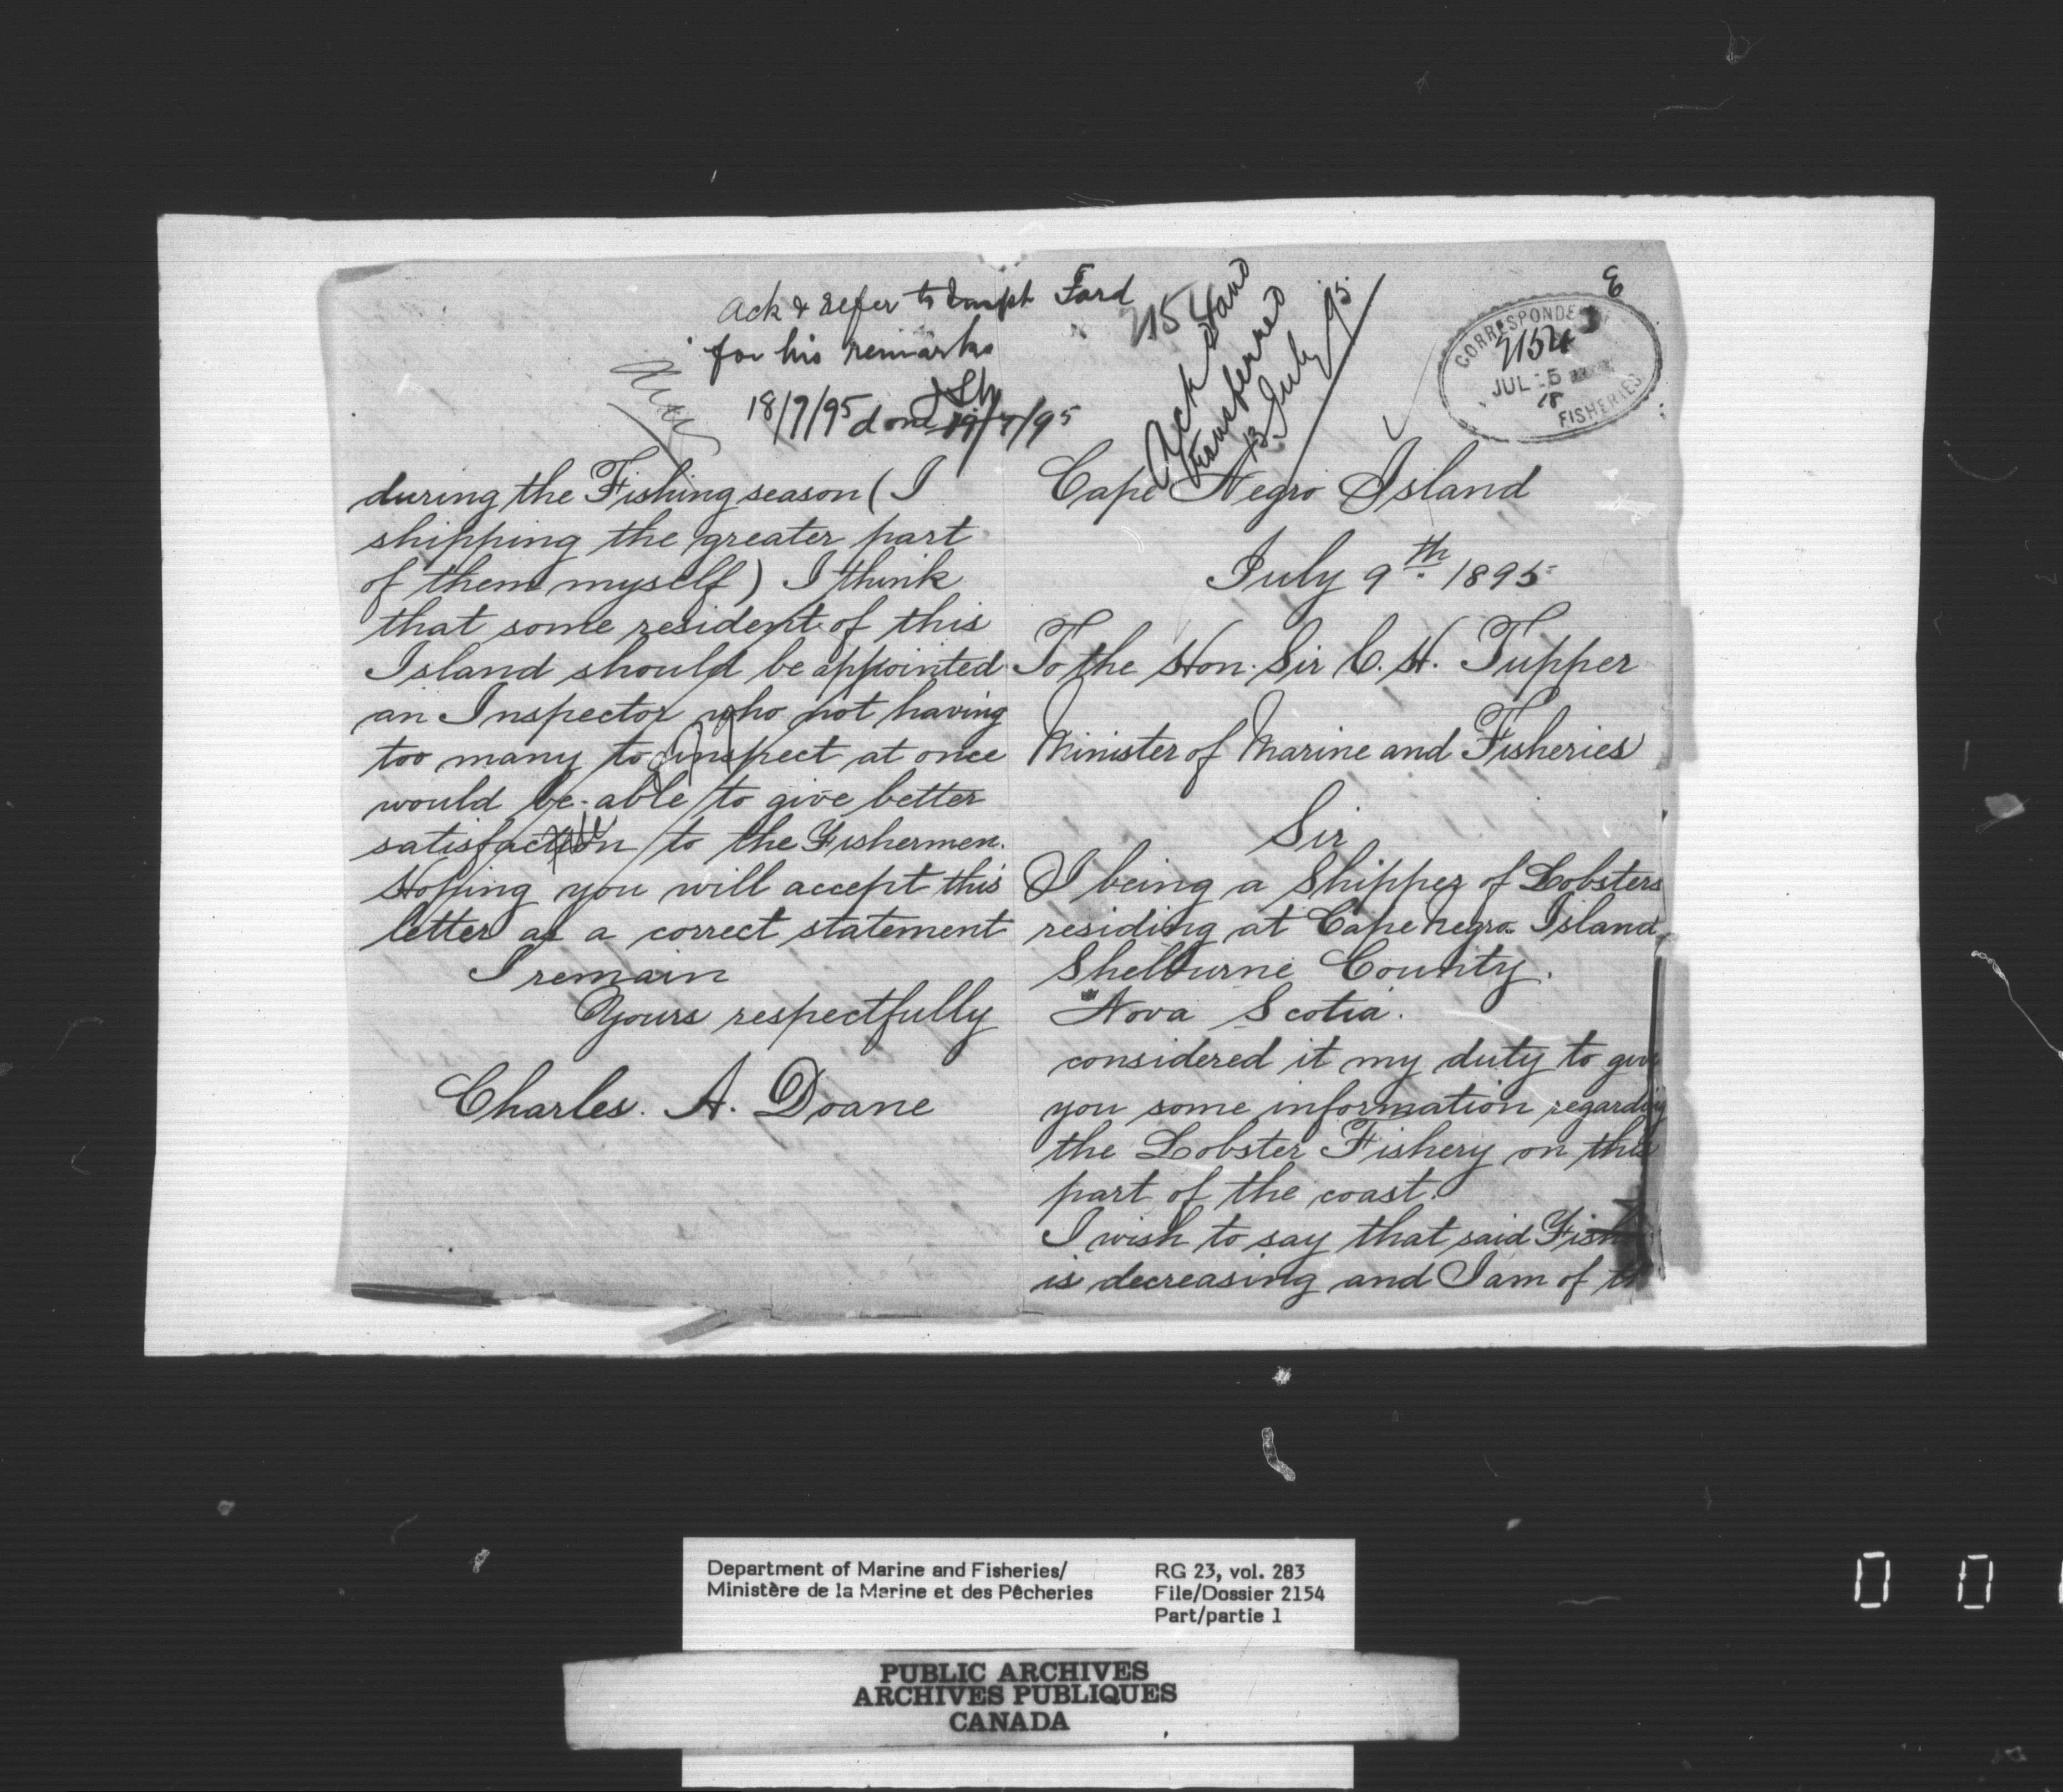 Ack & Refer to Inspt Ford
for his remarks
18/7/95 done 19/7/95
2154
Ack and
transferred
13 July/95
E
CORRESPONDENCE
2154
JUL 15
18
FISHERIES
during the Fishing season (I
shipping the greater part
of them myself) I think
that some resident of this
Island should be appointed
an Inspector who not having
too many to inspect at once
would be able to give better
satisfaction to the Fishermen.
Hoping you will accept this
letter as a correct statement
I remain
Yours respectfully
Charles. A. Doane
Cape Negro Island
July 9th. 1895
To the Hon. Sir C. H. Tupper
Minister of Marine and Fisheries
Sir
I being a Shipper of Lobsters
residing at Cape Negro Island
Shelburne County.
Nova Scotia.
considered it my duty to give
you some information regarding
the Lobster Fishery on this
part of the coast.
I wish to say that said Fish
is decreasing and I am of th
Department of Marine and Fisheries/
Ministère de la Marine et des Pêcheries
RG 23, vol. 283
File/Dossier 2154
Part/partie 1
PUBLIC ARCHIVES
ARCHIVES PUBLIQUES
CANADA
0 0